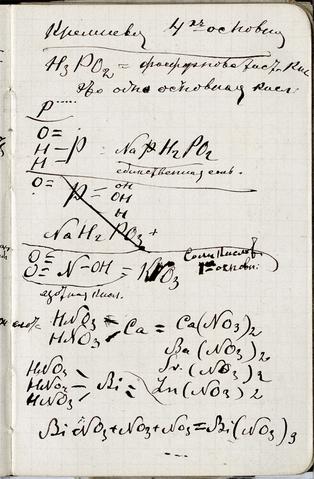 Кремневая 4х основная
H3PO2 = фосфорноватист. кис.
Это одно основная кисл.
P·····
O=
H—P = NaPH2PO2
H
единственная соль.
O=
P = OH
OH
H
NaH2PO3 +
O=
O= N-OH = KNO3
Соли кислов.
1-основн.
азотная кисл.
HNO3
HNO3 = Ca = Ca(NO3)2
Ba(NO3)2
Sr(NO3)2
HNO3
HNO3 — Bi = Zn(NO3)2
HNO3
Bi NO3+NO3+NO3=Bi(NO3)3